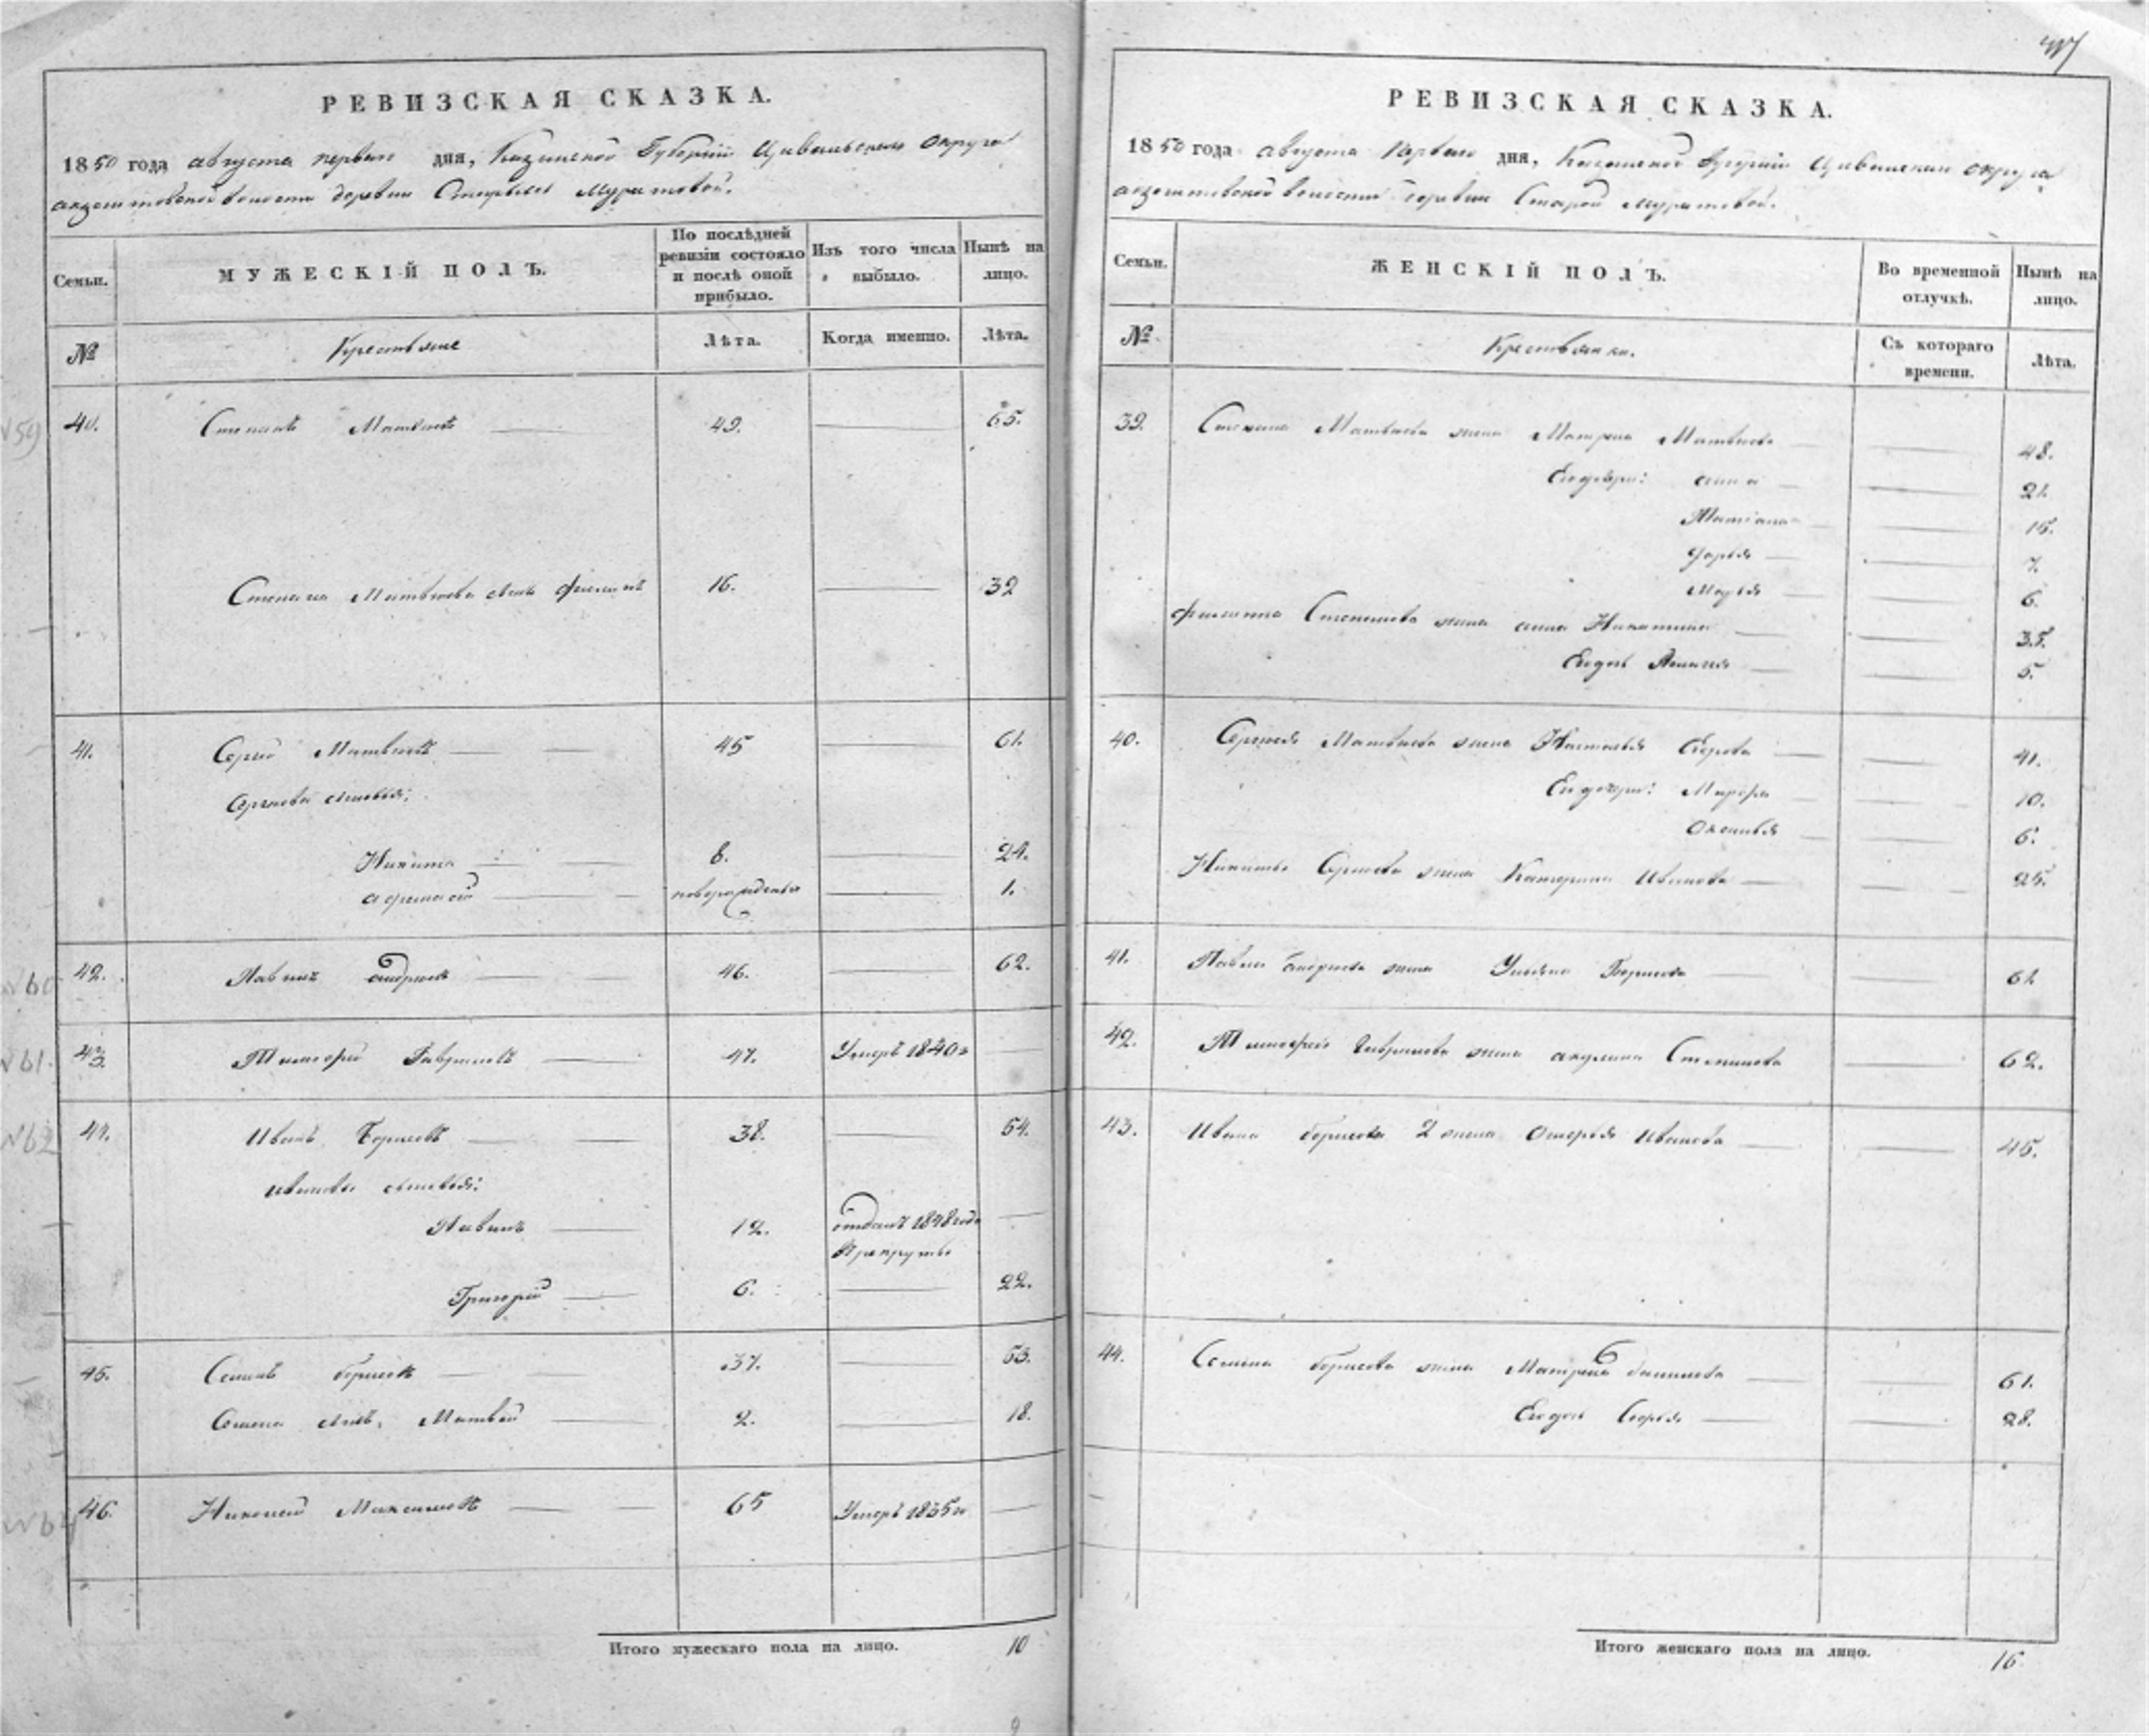 РЕВИЗСКАЯ СКАЗКА.
1850 года августа первого дня, Казанской Губернии Цивильскаго Округа
волости деревни Старой Муратовой.
Семьи.
МУЖЕСКІЙ ПОЛЪ.
По послѣдней ревизіи состояло и послѣ оной прибыло.
Изъ того числа выбыло.
Нынѣ на лицо.
№
Крестьяне
Лѣта.
Когда именно.
Лѣта.
№59 40. Степанъ Матвеевъ 49. 65.
Степана Матвеева сынъ Филипъ 16. 32
41. Сергей Матвеевъ 45 61.
Сергеевы сыновья:
Никита 8. 24.
Афанасій новорожденъ 1.
№60 42. Павелъ Андреевъ 46. 62.
№61. 43. Тимофей Гавриловъ 47. Умеръ 1840 г
№62 44. Иванъ Борисовъ 38. 54.
Ивановы сыновья:
Павелъ 12. отданъ 1848 года
в рекруты
Григорій 6. 22.
45. Семенъ Борисовъ 37. 53.
Семена сынъ, Матвей 2. 18.
№64 46. Николай Максимовъ 65 Умеръ 1835 г
Итого мужескаго пола на лицо. 10
9
РЕВИЗСКАЯ СКАЗКА.
1850 года августа первого дня, Казанской Губерніи Цивильскаго округа
волости деревни Старой Муратовой.
Семьи.
ЖЕНСКІЙ ПОЛЪ.
Во временной отлучкѣ.
Нынѣ на лицо.
№
Крестьянки.
Съ котораго времени.
Лѣта.
39. Степана Матвеева жена Матрена Матвеева 48.
Ево дочери: Анна 21.
Татіана 15.
Дарья 7.
Марья 6.
Филиппа Степанова жена Анна Никитина 35.
Ево дочь 5.
40. Сергея Матвеева жена Наталья Егорова 41.
Ево дочери: Марфа 10.
Оксинья 6.
Никиты Сергеева жена Катерина Иванова 25.
41. Павла Андреева жена Ульяна Борисова 61.
42. Тимофея Гаврилова жена Акулина Степанова 62.
43. Ивана Борисова 2 жена Иванова 45.
44. Семена Борисова жена Матрена Данилова 61.
Ево дочь 28.
Итого женскаго пола на лицо. 16